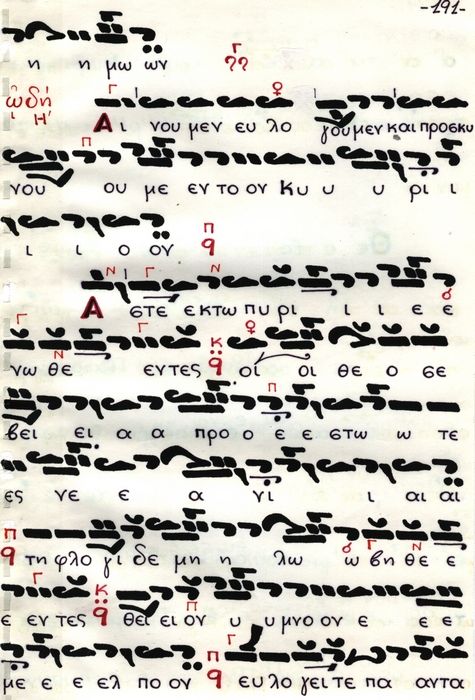 -191-
η η μω ων
ὠδή Αι νου μεν ευ λο γουμεν και προσκυ
ι Η'
νου ου με εν το ον Κυ υ υ ρι ι
ι ι ο ον
Α στε εκτω πυ ρι ι ι ε ε
νω θε εντες οἱ οι θε ο σε
βει ει α α προ ο ε ε στω ω τε
ες νε ε α νι ι αι αἱ
τη φλο γι δε μη η λω ω βη θε ε
ε εν τες θει ει ον υ υ μνο ον ε ε ε
με ε ε ελ πο ον ευ λο γει τε πα αντα